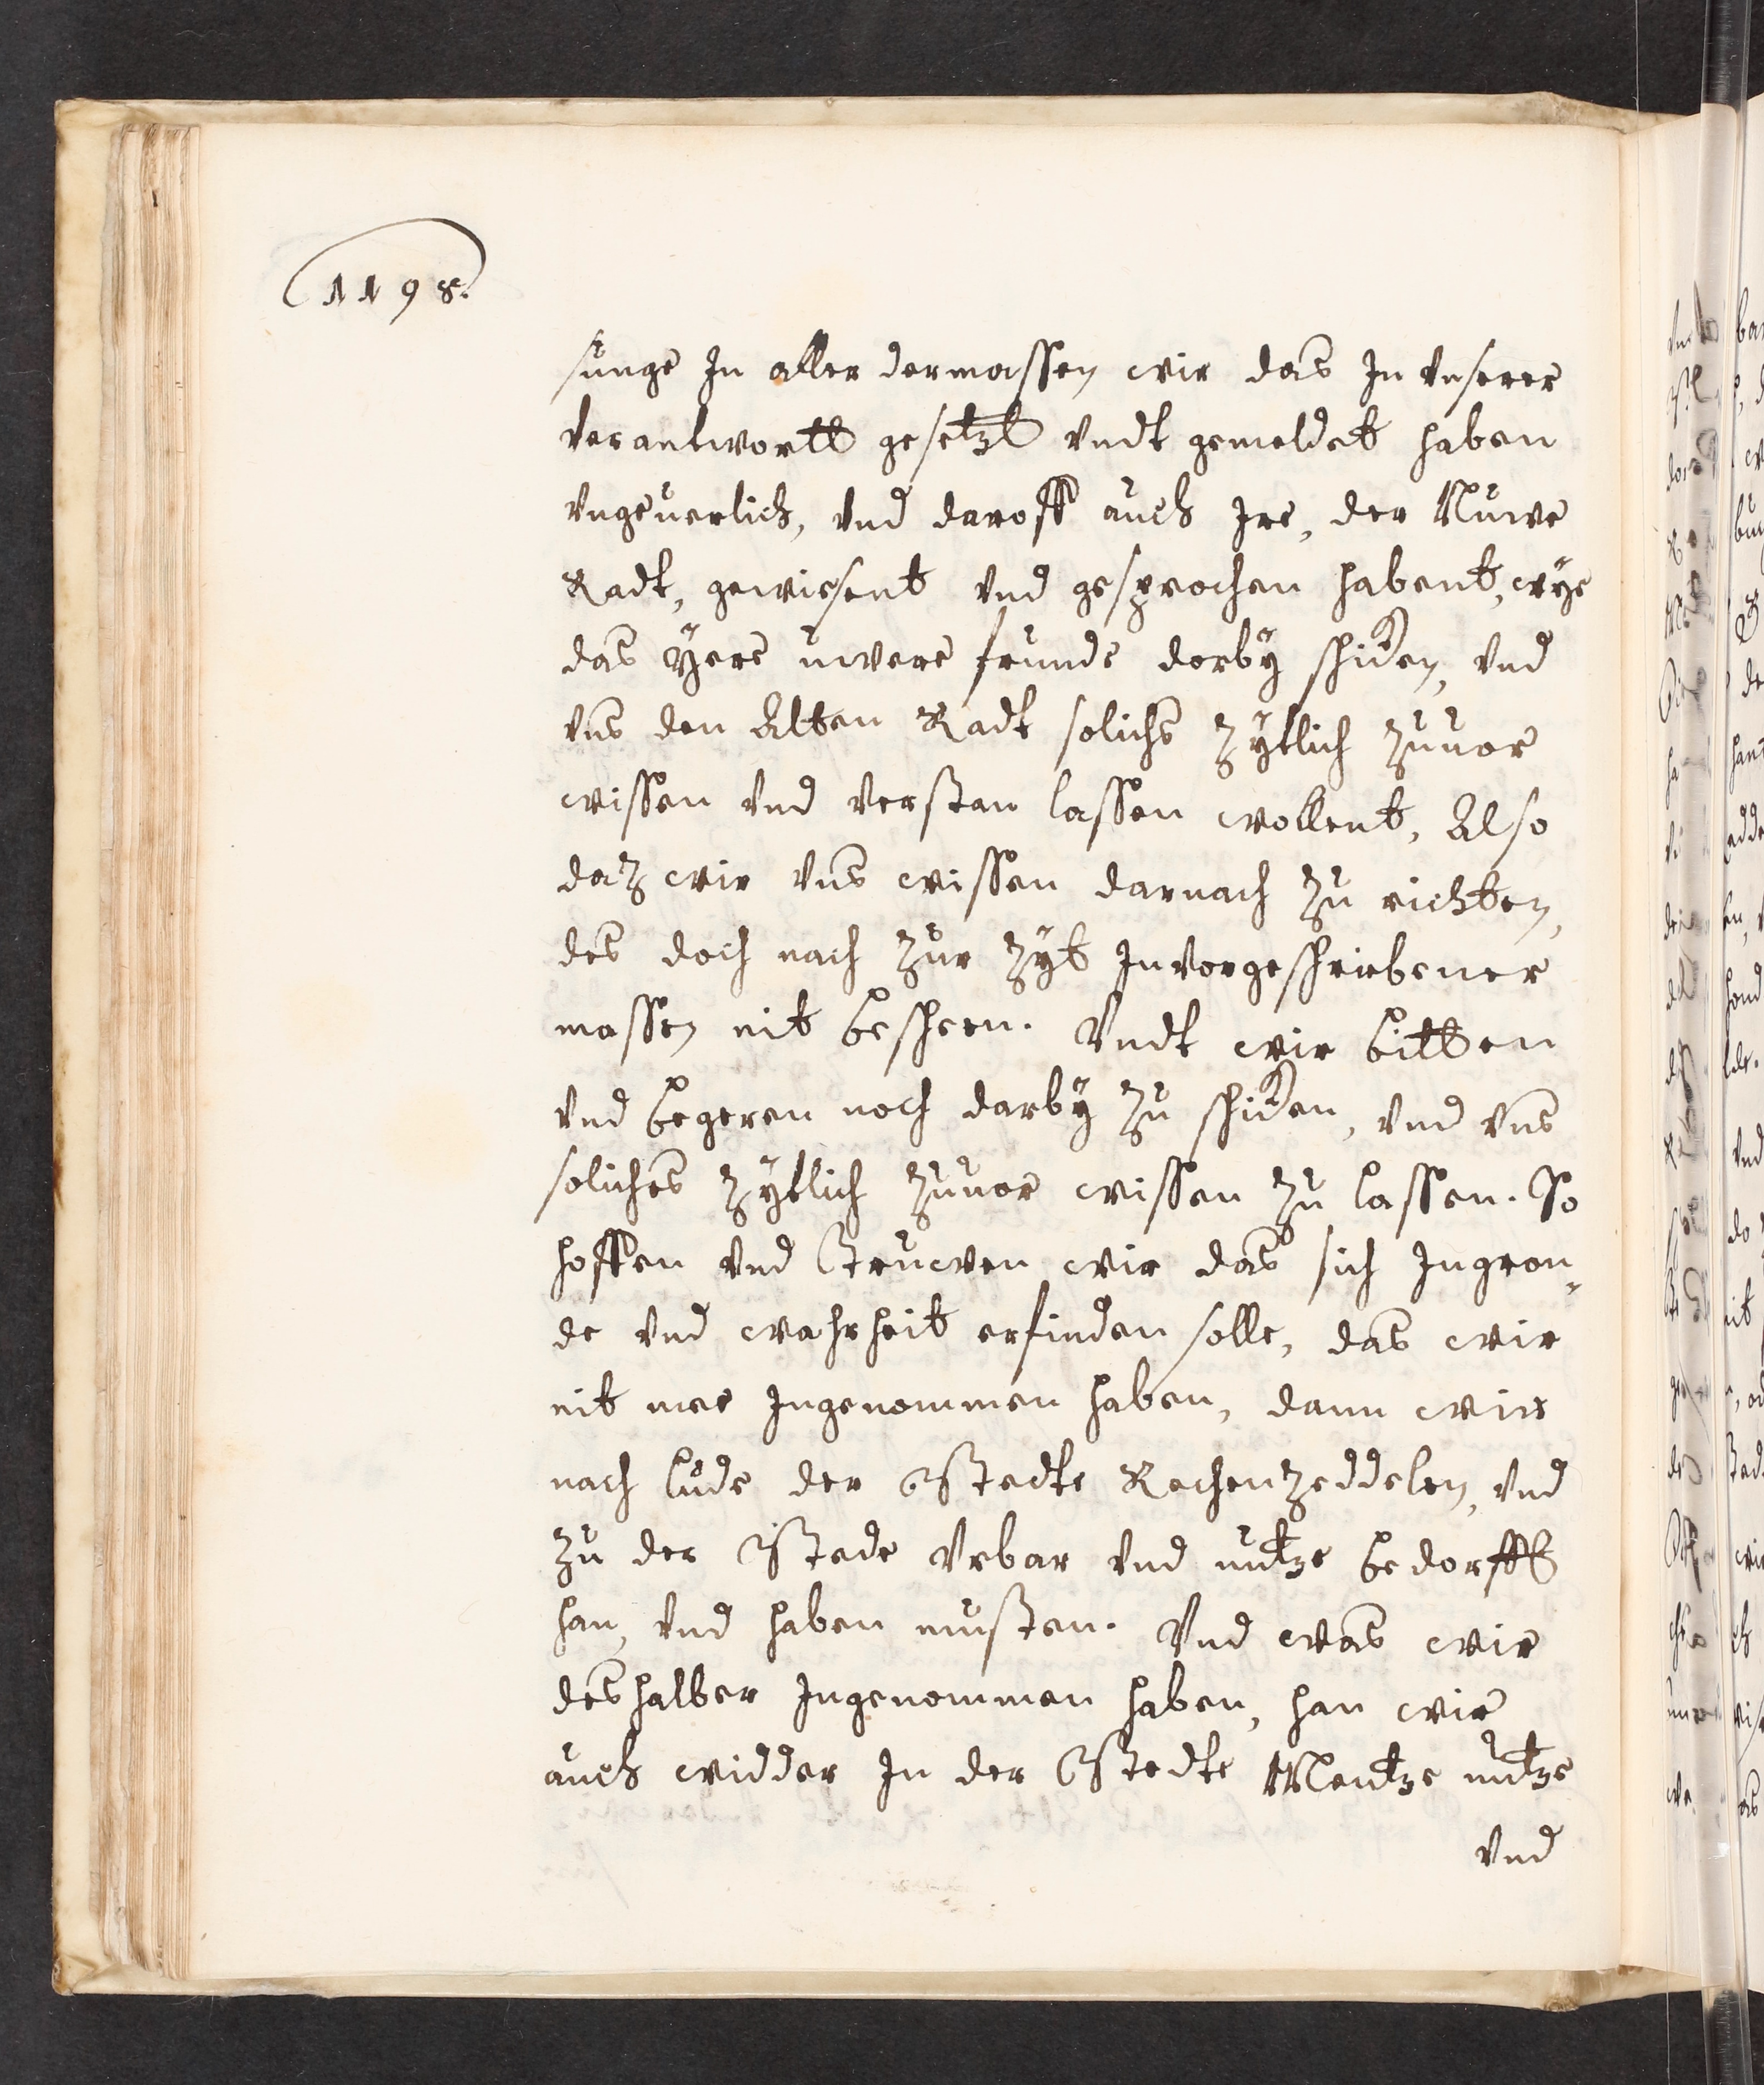 1198.
sunge In aller dermassen wir das In vnserer
verantwortt gesetzt vndt gemeldet haben
vngeuerlich, vnd daroff auch Ire, der Nuwe
Radt, gewiesent vnd gesprochen habent, wye
das Ihere uwere frunde dorby schicken, vnd
vns den Alten Radt solichs zytlich zuuor
wissen vnd verstan lassen wollent, Also
daz wir vns wissen darnach zu richten,
des doch nach zur zyt In vorgeschriebener
massen nit bescheen. Vndt wir bitten
vnd begeren noch darby zu schicken, vnd vns
soliches zytlich zuuor wissen zu lassen. So
hoffen vnd Truwen wir das sich In gron-
de vnd wahrheit erfinden solle, das wir
nit mee Ingenommen haben, dann wirs
nach lude der Stedte Rechenzeddelen, vnd
zu der Stede Vrbar vnd nutze bedorfft
han, vnd haben musten. Vnd was wir
deshalber Ingenommen haben, han wir
auch widder In der Stedte Mentze nutze
vnd